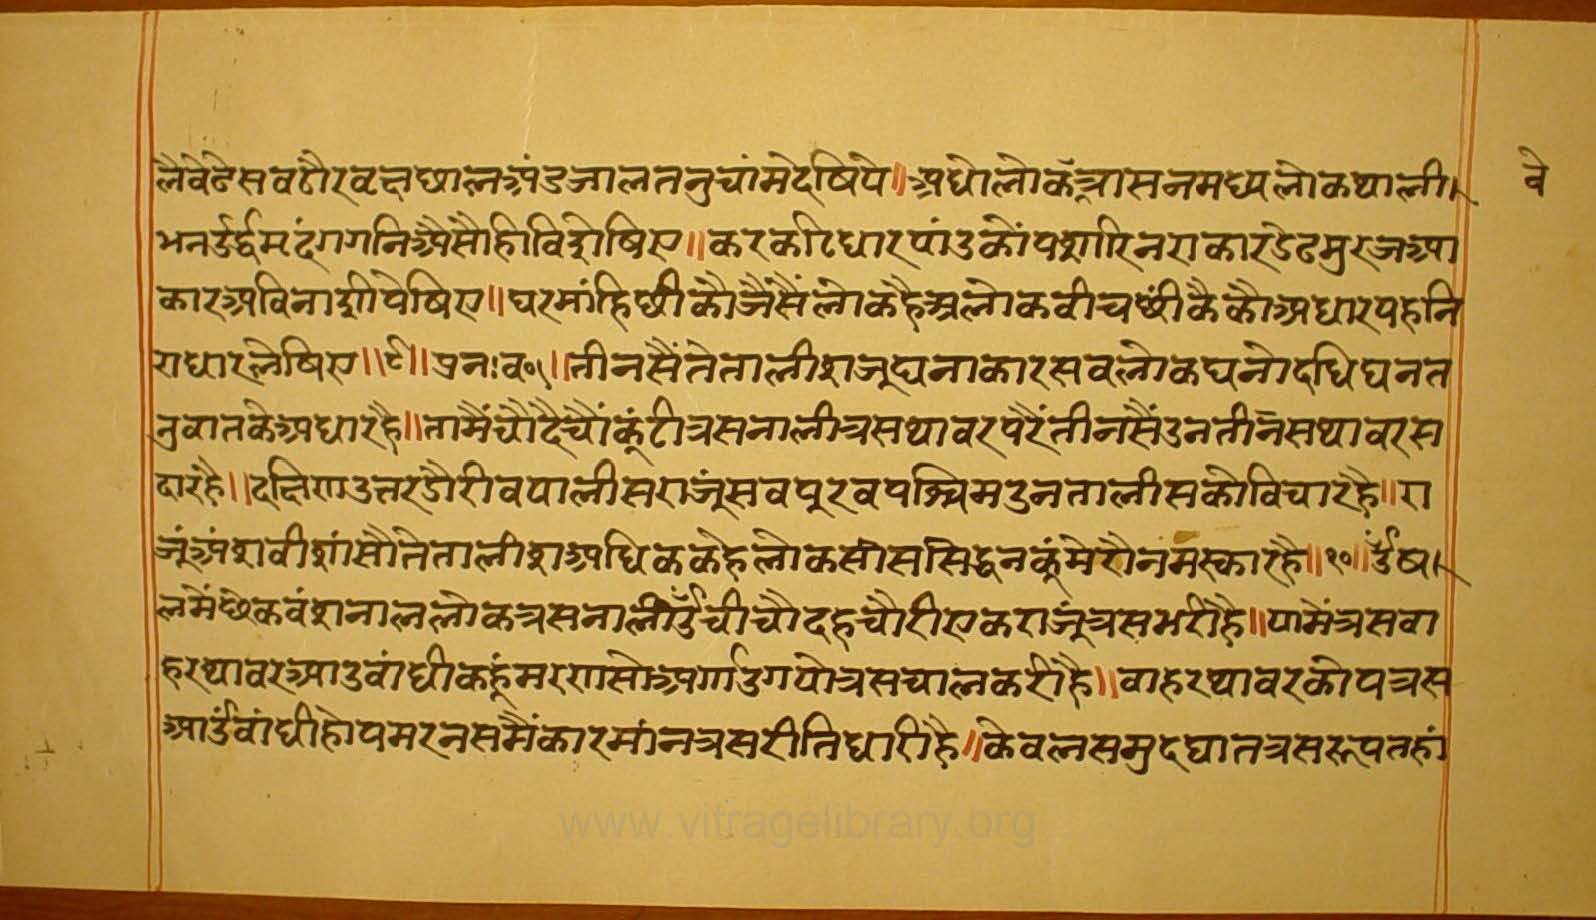 लैवेढेसवठौरवृक्षछालअंडजालतनुचांमदेषिये॥अधोलोकवेत्रासनमध्यलोकथाली
वे
भनउर्द्धमृदंगगनिअैसौहीविशेषिए॥करकटिधारपांउकौंपशारिनराकारडेढमुरजआ
कारअविनाशीपेषिए॥घरमांहिछीकौजैसैंलोकहैअलोकवीचछींकैकौअधारयहनि
राधारलेषिए॥९॥पुनः व०॥तीनसैंतेतालीशजूघनाकारसवलोकघनोदधिघनत
नुवातकेअधारहै॥तामैंचौदैचौंकूंटीत्रसनालीत्रसथावरपरैंतीनसैंउनतीनसथावरस
दारहै॥दक्षिणउत्तरडौरीवयालीसराजूंसवपूरवपश्चिमउनतालीसकोविचारहै॥रा
जूंअंशवीशसौतेतालीशअधिककहेलोकसीससिद्धनकूंमेरौनमस्कारहै॥१०॥उंष
लमेंछेकवंशनाललोकत्रसनालीउंचीचौदहचौरीएकराजूंत्रसभरीहै॥यामेंत्रसवा
हरथावरआउवांधीकहूंमरणसोअगांउगयोत्रसचालकरीहै॥वाहरथावरकोयत्रस
आउंवांधीहोयमरनसमैंकारमांनत्रसरीतिधारीहै॥केवलसमुदघातत्रसरूपतहां
www.vitragelibrary.org